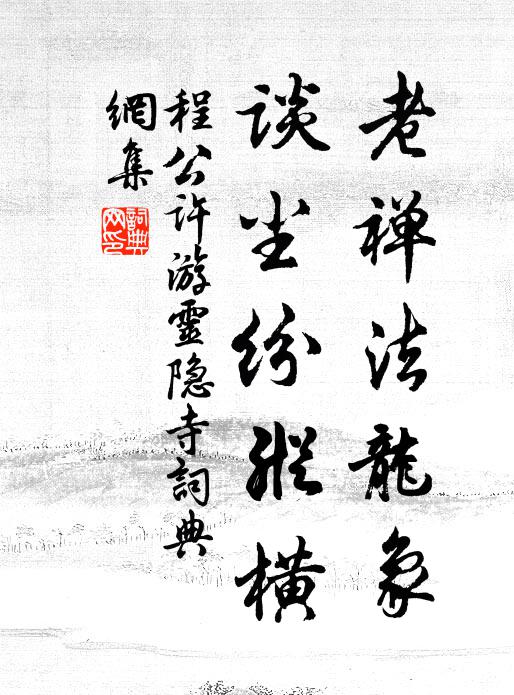 老禅法龍象
談尘纷縱橫
程公许游靈隐寺詞典
網集
詞典
网印